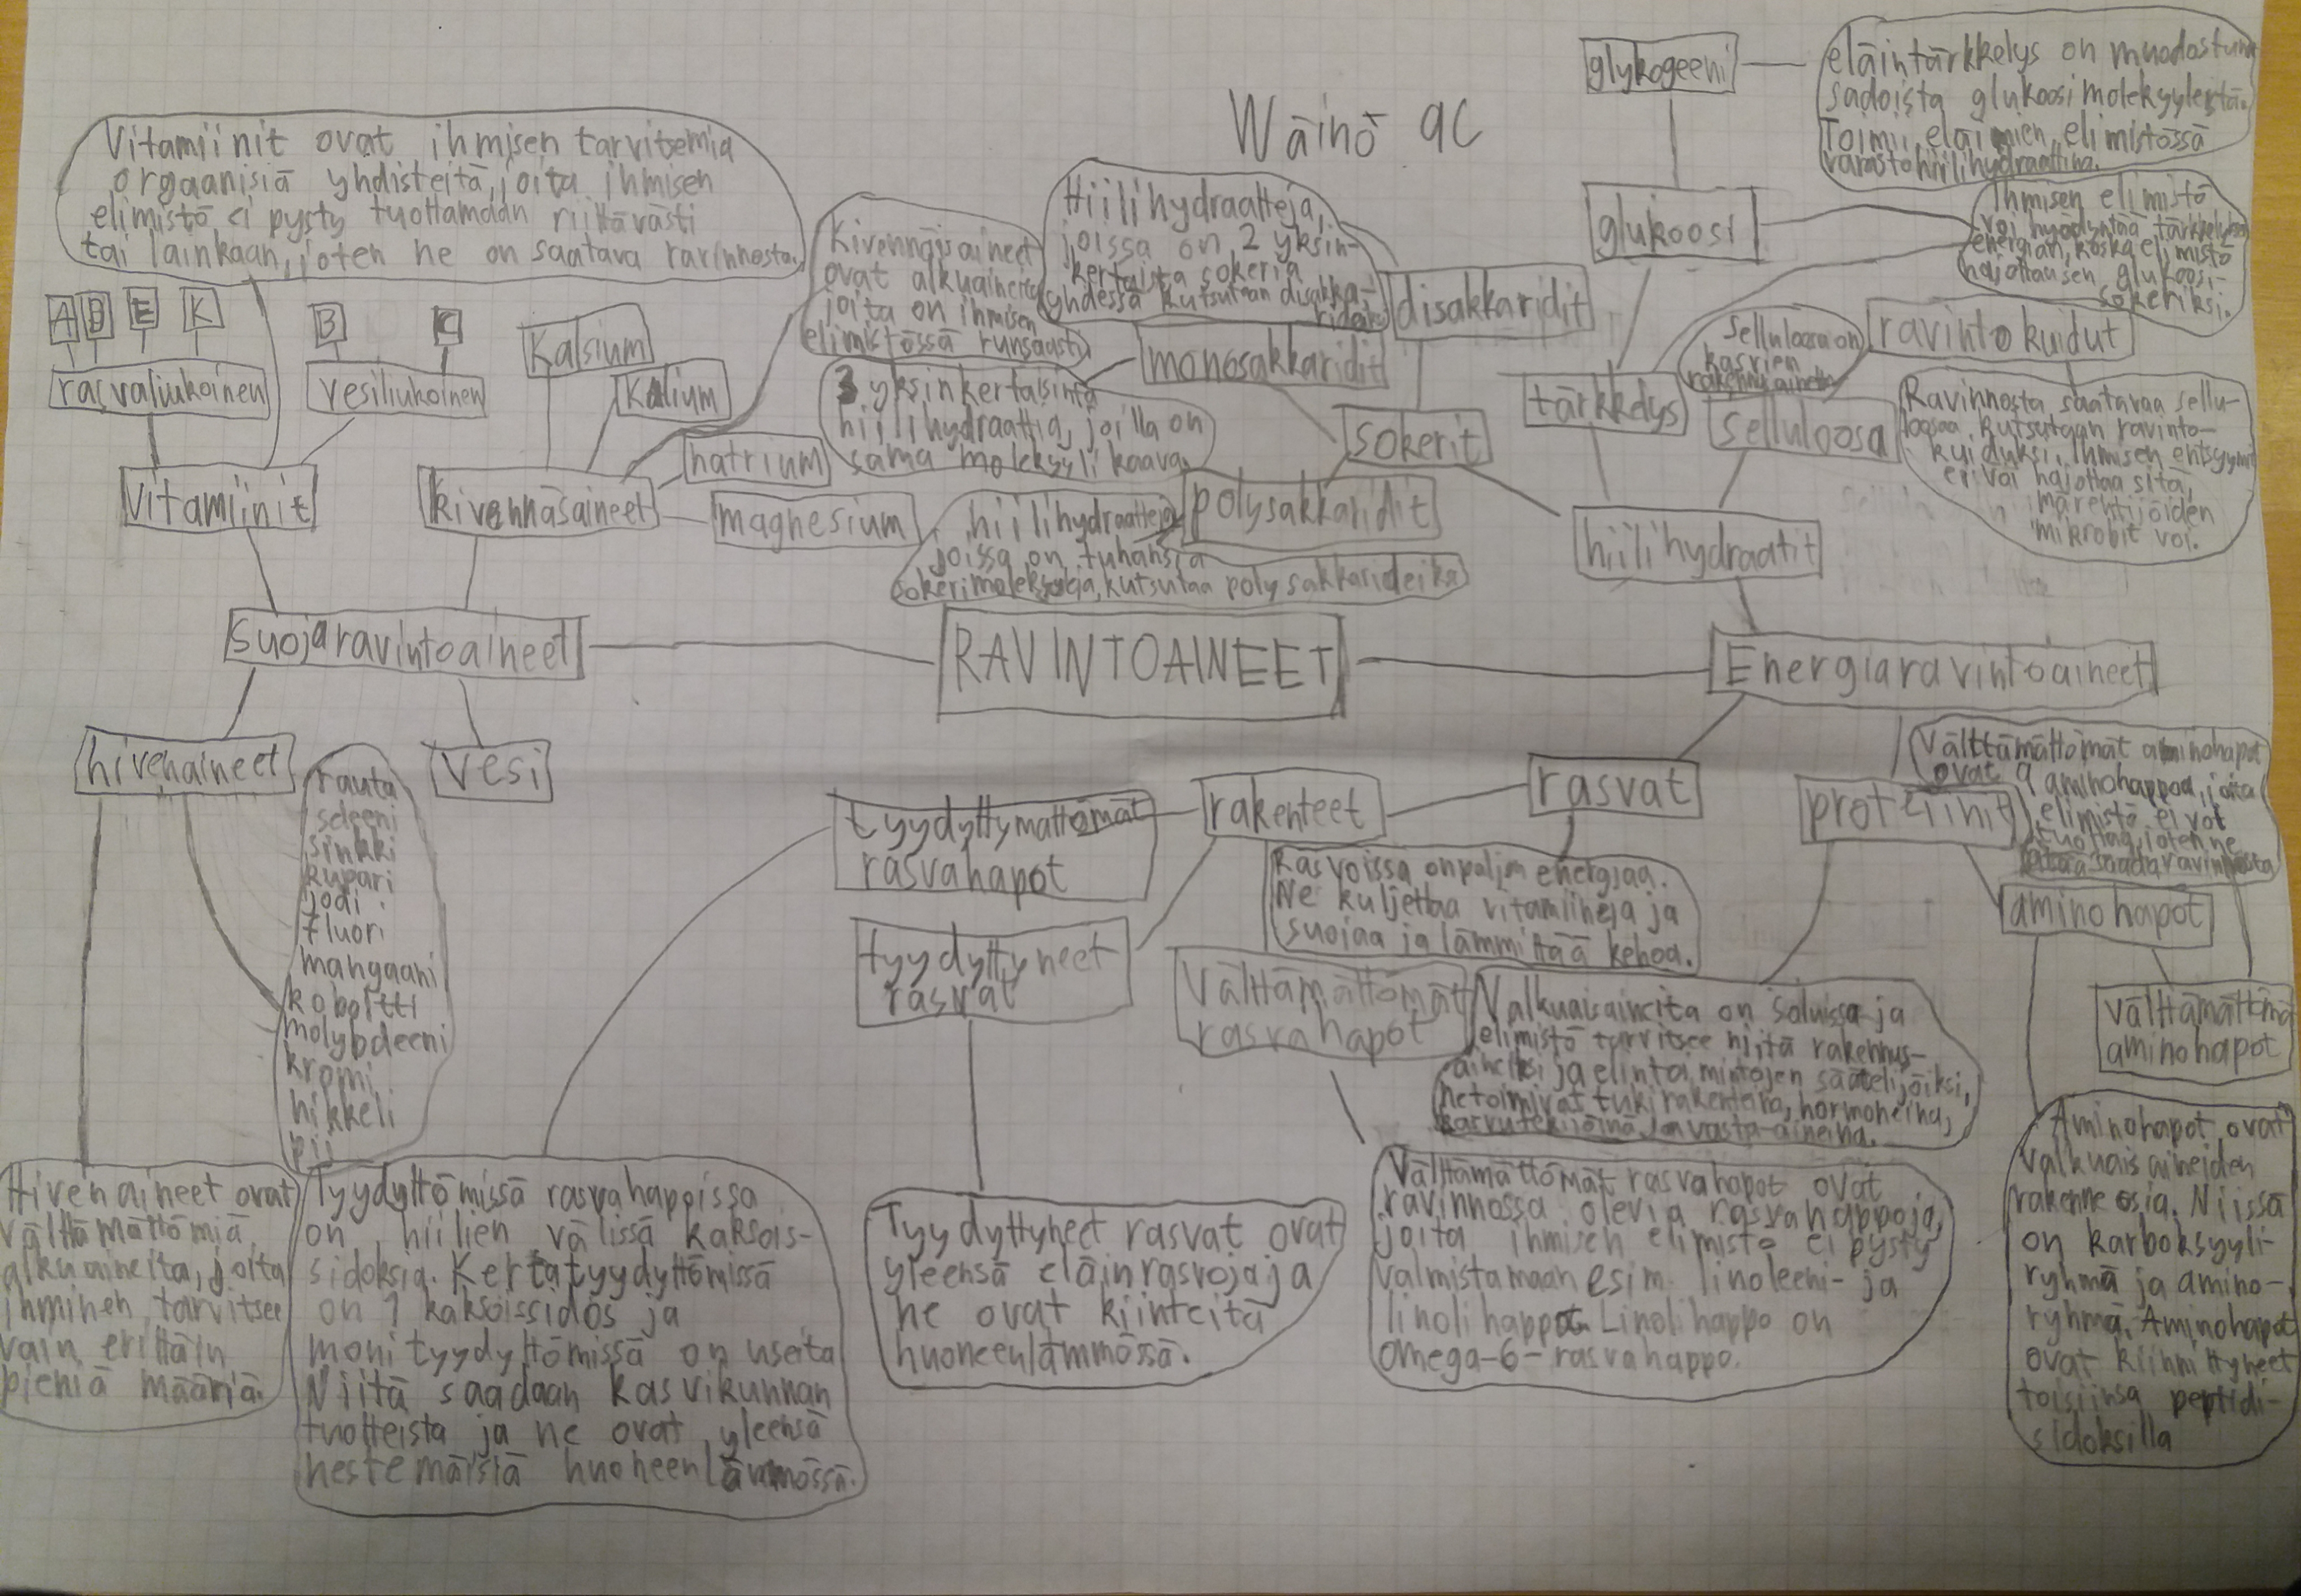 Wäinö 9C
glykogeeni
eläintärkkelys on muodostunut
sadoista glukoosimolekyyleistä.
Toimii eläimien elimistössä
varastohiilihydraattina.
Vitamiinit ovat ihmisen tarvitemia
orgaanisiä yhdisteitä, joita ihmisen
elimistö ei pysty tuottamaan riittävästi
tai lainkaan, joten ne on saatava ravinnosta.
A
D
E
K
B
C
rasvaliukoinen
vesiliukoinen
vitamiinit
Kalsium
Kalium
natrium
magnesium
kivennäsaineet
Kivennäisaineet
ovat alkuaineita
joita on ihmisen
elimistössä runsaasti
Hiilihydraatteja,
joissa on 2 yksin-
kertaista sokeria
yhdessä kutsutaan disakka-
rideiksi
disakkaridit
monosakkaridit
3 yksinkertaisinta
hiilihydraattia, joilla on
sama molekyylikaava.
sokerit
polysakkaridit
hiilihydraatteja
joissa on tuhansia
sokerimolekyylejä, kutsutaa polysakkarideiksi
glukoosi
Ihmisen elimistö
voi hyödyntää tärkkelyksen
energian, koska elimistö
hajottaa sen glukoosi-
sokeriksi.
tärkkelys
Selluloosa on
kasvien
rakennusaine
selluloosa
ravintokuidut
Ravinnosta saatavaa sellu-
loosaa kutsutaan ravinto-
kuiduksi. Ihmisen entsyymit
ei voi hajottaa sitä,
märehtijöiden
mikrobit voi.
hiilihydraatit
suojaravintoaineet
RAVINTOAINEET
Energiaravintoaineet
hivenaineet
vesi
rauta
seleeni
sinkki
kupari
jodi
fluori
mangaani
koboltti
molybdeeni
kromi
nikkeli
pii
Hivenaineet ovat
välttämättömiä
alkuaineita, joita
ihminen tarvitsee
vain erittäin
pieniä määriä.
tyydyttymättömät
rasvahapot
rakenteet
rasvat
tyydyttyneet
rasvat
Rasvoissa on paljon energiaa.
Ne kuljettaa vitamiineja ja
suojaa ja lämmittää kehoa.
Välttämättömät
rasvahapot
proteiinit
Välttämättömät aminohapot
ovat 9 aminohappoa, joita
elimistö ei voi
tuottaa, joten ne
pitää saada ravinnosta
aminohapot
välttämättömä
aminohapot
Valkuaisaineita on soluissa ja
elimistö tarvitsee niitä rakennus-
aineiksi ja elintamintojen säätelijöiksi,
ne toimivat tukirakenteina, hormoneina,
kasvutekijöinä ja vasta-aineina.
Tyydyttömissä rasvahapoissa
on hiilien välissä kaksois-
sidoksia. Kertatyydyttömissä
on 1 kaksoissidos ja
monityydyttömissä on useita
Niitä saadaan kasvikunnan
tuotteista ja ne ovat yleensä
nestemäisiä huoneenlämmössä.
Tyydyttyneet rasvat ovat
yleensä eläinrasvoja ja
ne ovat kiinteitä
huoneenlämmössä.
Välttämättömät rasvahapot ovat
ravinnossa olevia rasvahappoja,
joita ihmisen elimistö ei pysty
valmistamaan esim. linoleeni- ja
linolihappo. Linolihappo on
omega-6-rasvahappo.
Aminohapot ovat
valkuaisaineiden
rakenneosia. Niissä
on karboksyyli-
ryhmä ja amino-
ryhmä. Aminohapot
ovat kiinnittyneet
toisiinsa peptidi-
sidoksilla